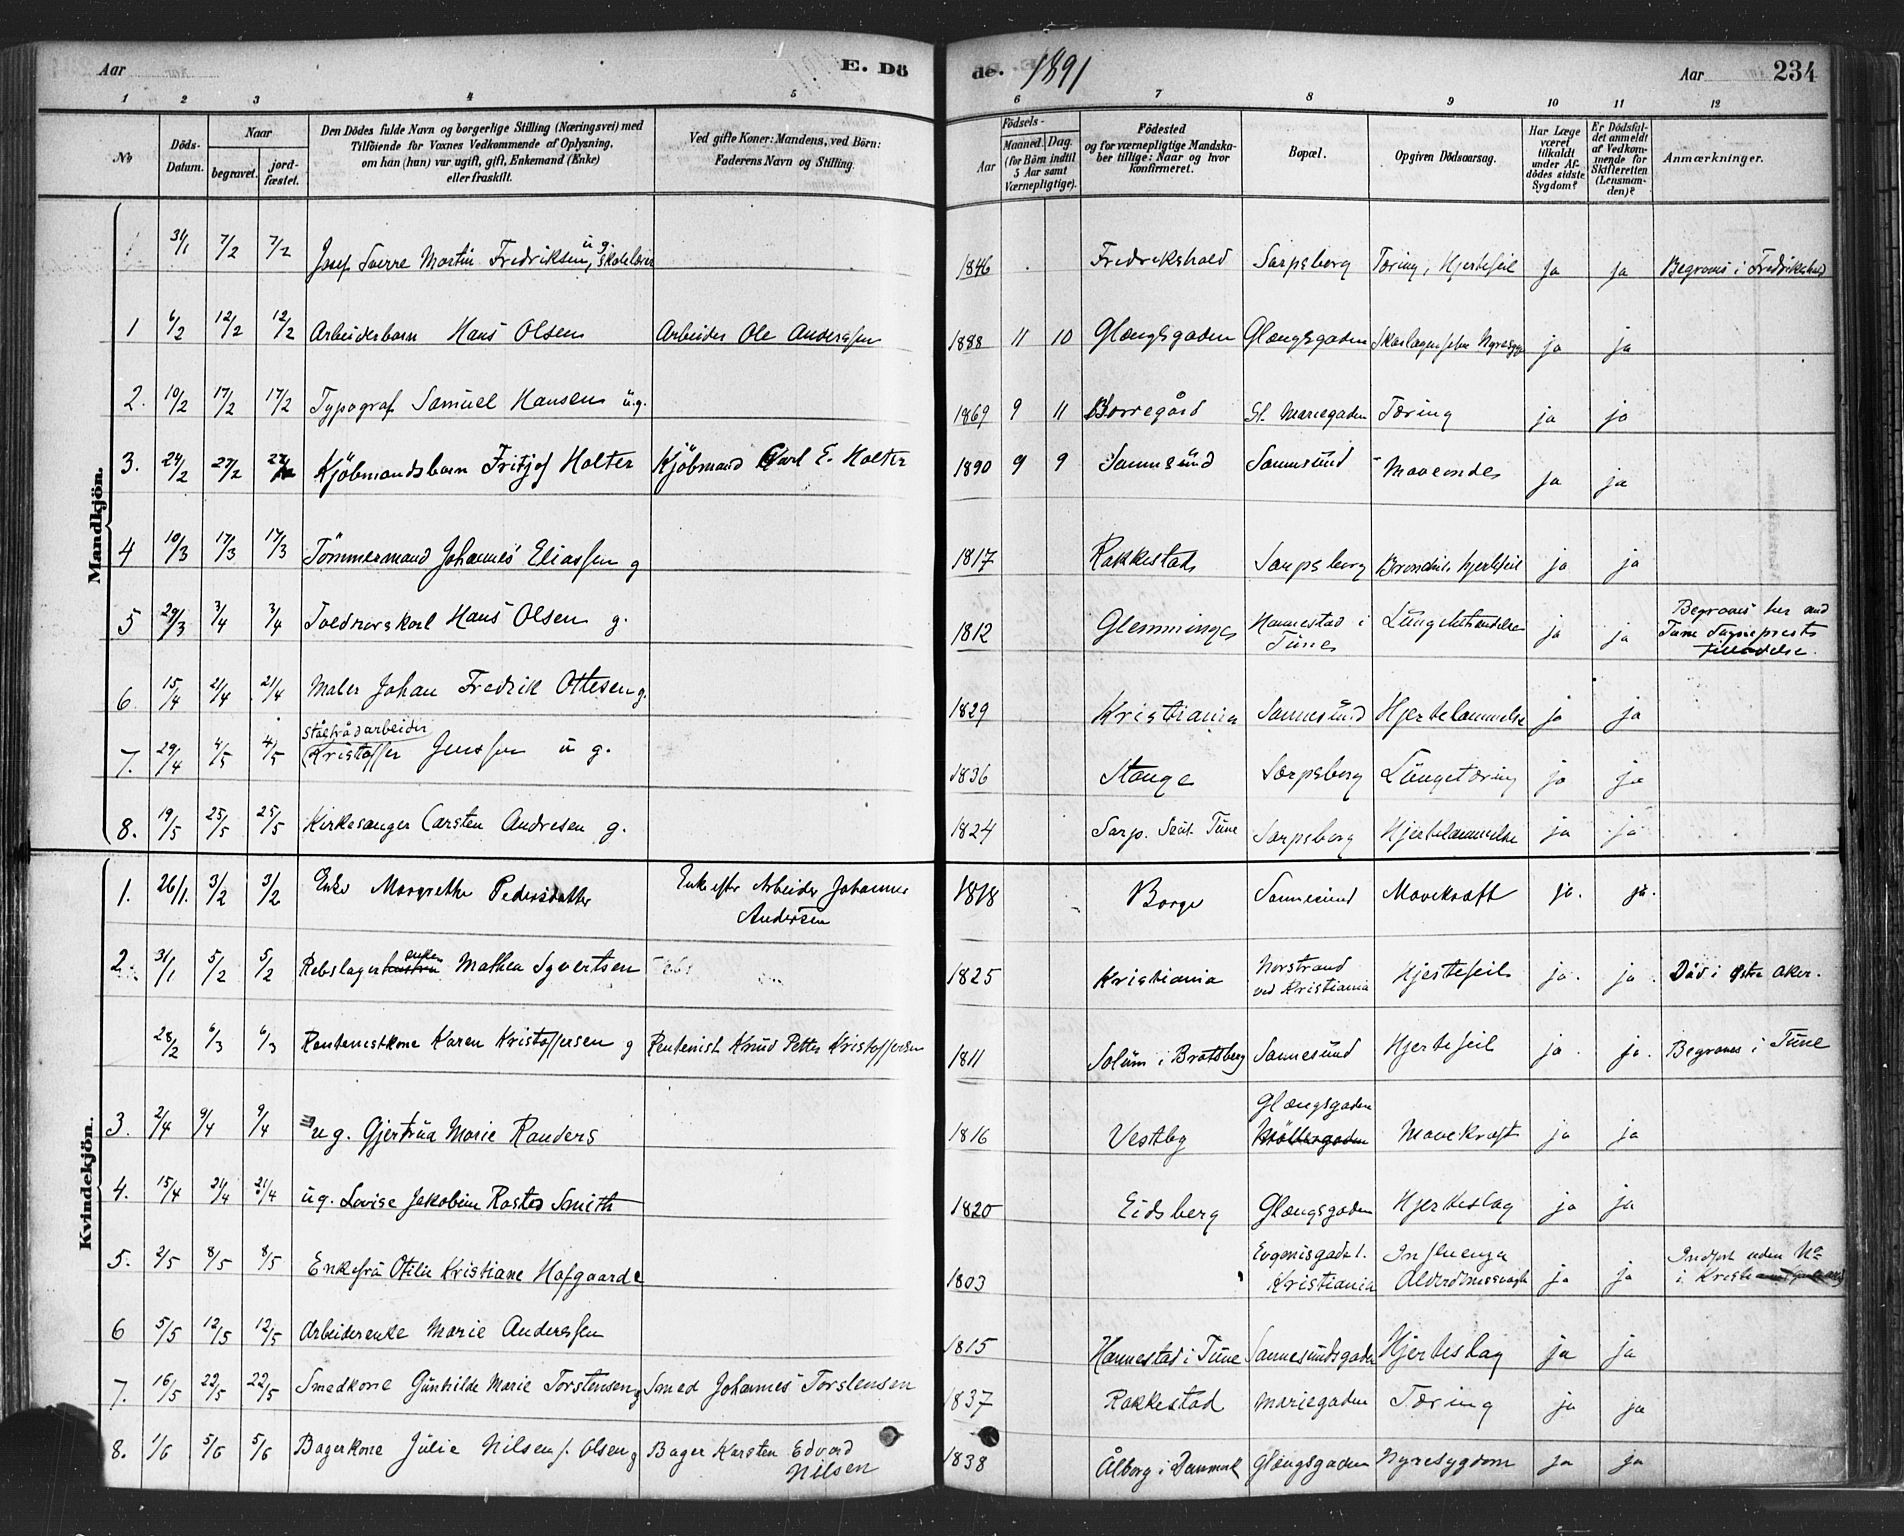 Aar E. Dö de. 1891 Aar 234
1 2 3 4 5 6 7 8 9 10 11 12
No
Döds-Datum.
Naar
begravet.
jordfæstet.
Den Dödes fulde Navn og borgerlige Stilling (Næringsvei) med
Tilföiende for Voxnes Vedkommende af Oplysning,
om han (hun) var ugift, gift, Enkemand (Enke)
eller fraskilt.
Ved gifte Koner: Mandens, ved Börn:
Faderens Navn og Stilling.
Födsels-
Aar
Maaned. Dag.
(for Börn indtil
5 Aar samt
Værnepligtige).
Födested
og for værnepligtige Mandskaber tillige: Naar og hvor
konfirmeret.
Bopæl.
Opgiven Dödsaarsag.
Har Læge
været
tilkaldt
under Afdödes sidste
Sygdom?
Er Dödsfaldet anmeldt
af Vedkommende for
Skifteretten
(Lensmanden)?
Anmærkninger.
Mandkjön.
31/1 7/2 7/2 Josef Sverre Martin Fredriksen, ug. skolelærer 1846 Fredrikshald Sarpsborg Tæring, Hjertefeil ja ja Begraves i Fredrikshald
1 6/2 12/2 12/2 Arbeiderbarn Hans Olsen Arbeider Ole Anderssen 1888 11 10 Glængsgaden Glængsgaden Skarlagensfeber Nyresyge ja ja
2. 10/2 17/2 17/2 Typograf Samuel Hansen u.g. 1869 9 11 Borregård St. Mariegaden Tæring ja ja
3. 24/2 27/2 27/2 Kjöbmandsbarn Fritjof Holter Kjöbmand Carl E. Holter 1890 9 9 Sannesund Sannesund Maveonde ja ja
4 10/3 17/3 17/3 Tømmermand Johannes Eliassen g 1817 Rakkestad Sarpsborg Bronchit. hjertefeil ja ja
5 29/3 3/4 3/4 Toldrorskarl Hans Olsen g. 1812 Glemminge Hannestad i Tune Lungebetændelse ja ja Begraves her med Tune Sogneprests tilladelse.
6 15/4 21/4 21/4 Maler Johan Fredrik Ottesen g. 1829 Kristiania Sannesund Hjertelammelse ja ja
7. 29/4 4/5 4/5 Ståltrådarbeider Kristoffer Jenssen u g. 1836 Stange Sarpsborg Lungetæring ja ja
8. 19/5 25/5 25/5 Kirkesanger Carsten Andresen g. 1824 Sarp. Tune Sarpsborg Hjertelammelse ja ja
Kvindekjön.
1. 26/1. 3/2 3/2 Enke Margrethe Pedersdatter Enke efter Arbeider Johannes Andersen 1818 Borge Sannesund Mavekræft ja. ja.
2. 31/1 5/2 5/2 Rebslagerhustru enken Mathea Syvertsen 1825 Kristiania Norstrand ved Kristiania Hjertefeil ja. ja. Död i østre Aker.
28/2 6/3 6/3 Rentenistkone Karen Kristoffersen g Rentenist Knud Petter Kristoffersen 1811 Solum i Bratsberg Sannesund Hjertefeil ja. ja. Begraves i Tune
3. 2/4 9/4 9/4 ug. Gjertrud Marie Randers 1816 Vestby Glængsgaden Möllergaden Mavekræft ja ja
4. 15/4 21/4 21/4 ug. Lovise Jakobine Rosted Smith 1820 Eidsberg Glængsgaden Hjerteslag ja ja
5. 2/5 8/5 8/5 Enkefru Otilie Kristiane Hofgaard 1803 Eugenisgade 1. Kristiania Influenza Alderdomssvagh ja ja Indført uden No i
6 5/5 12/5 12/5 Arbeiderenke Marie Anderssen 1815 Hannestad i Tune Sannesundsgaden Hjerteslag ja ja
7. 16/5 22/5 22/5 Smedkone Gunhilde Marie Torstensen g Smed Johannes Torstensen 1837 Rakkestad Mariegaden Tæring ja ja
8. 1/6 5/6 5/6 Bagerkone Julie Nilsen f. Olsen g Bager Karsten Edvard Nilsen 1838 Ålborg i Danmark Glængsgaden Nyresygdom ja ja